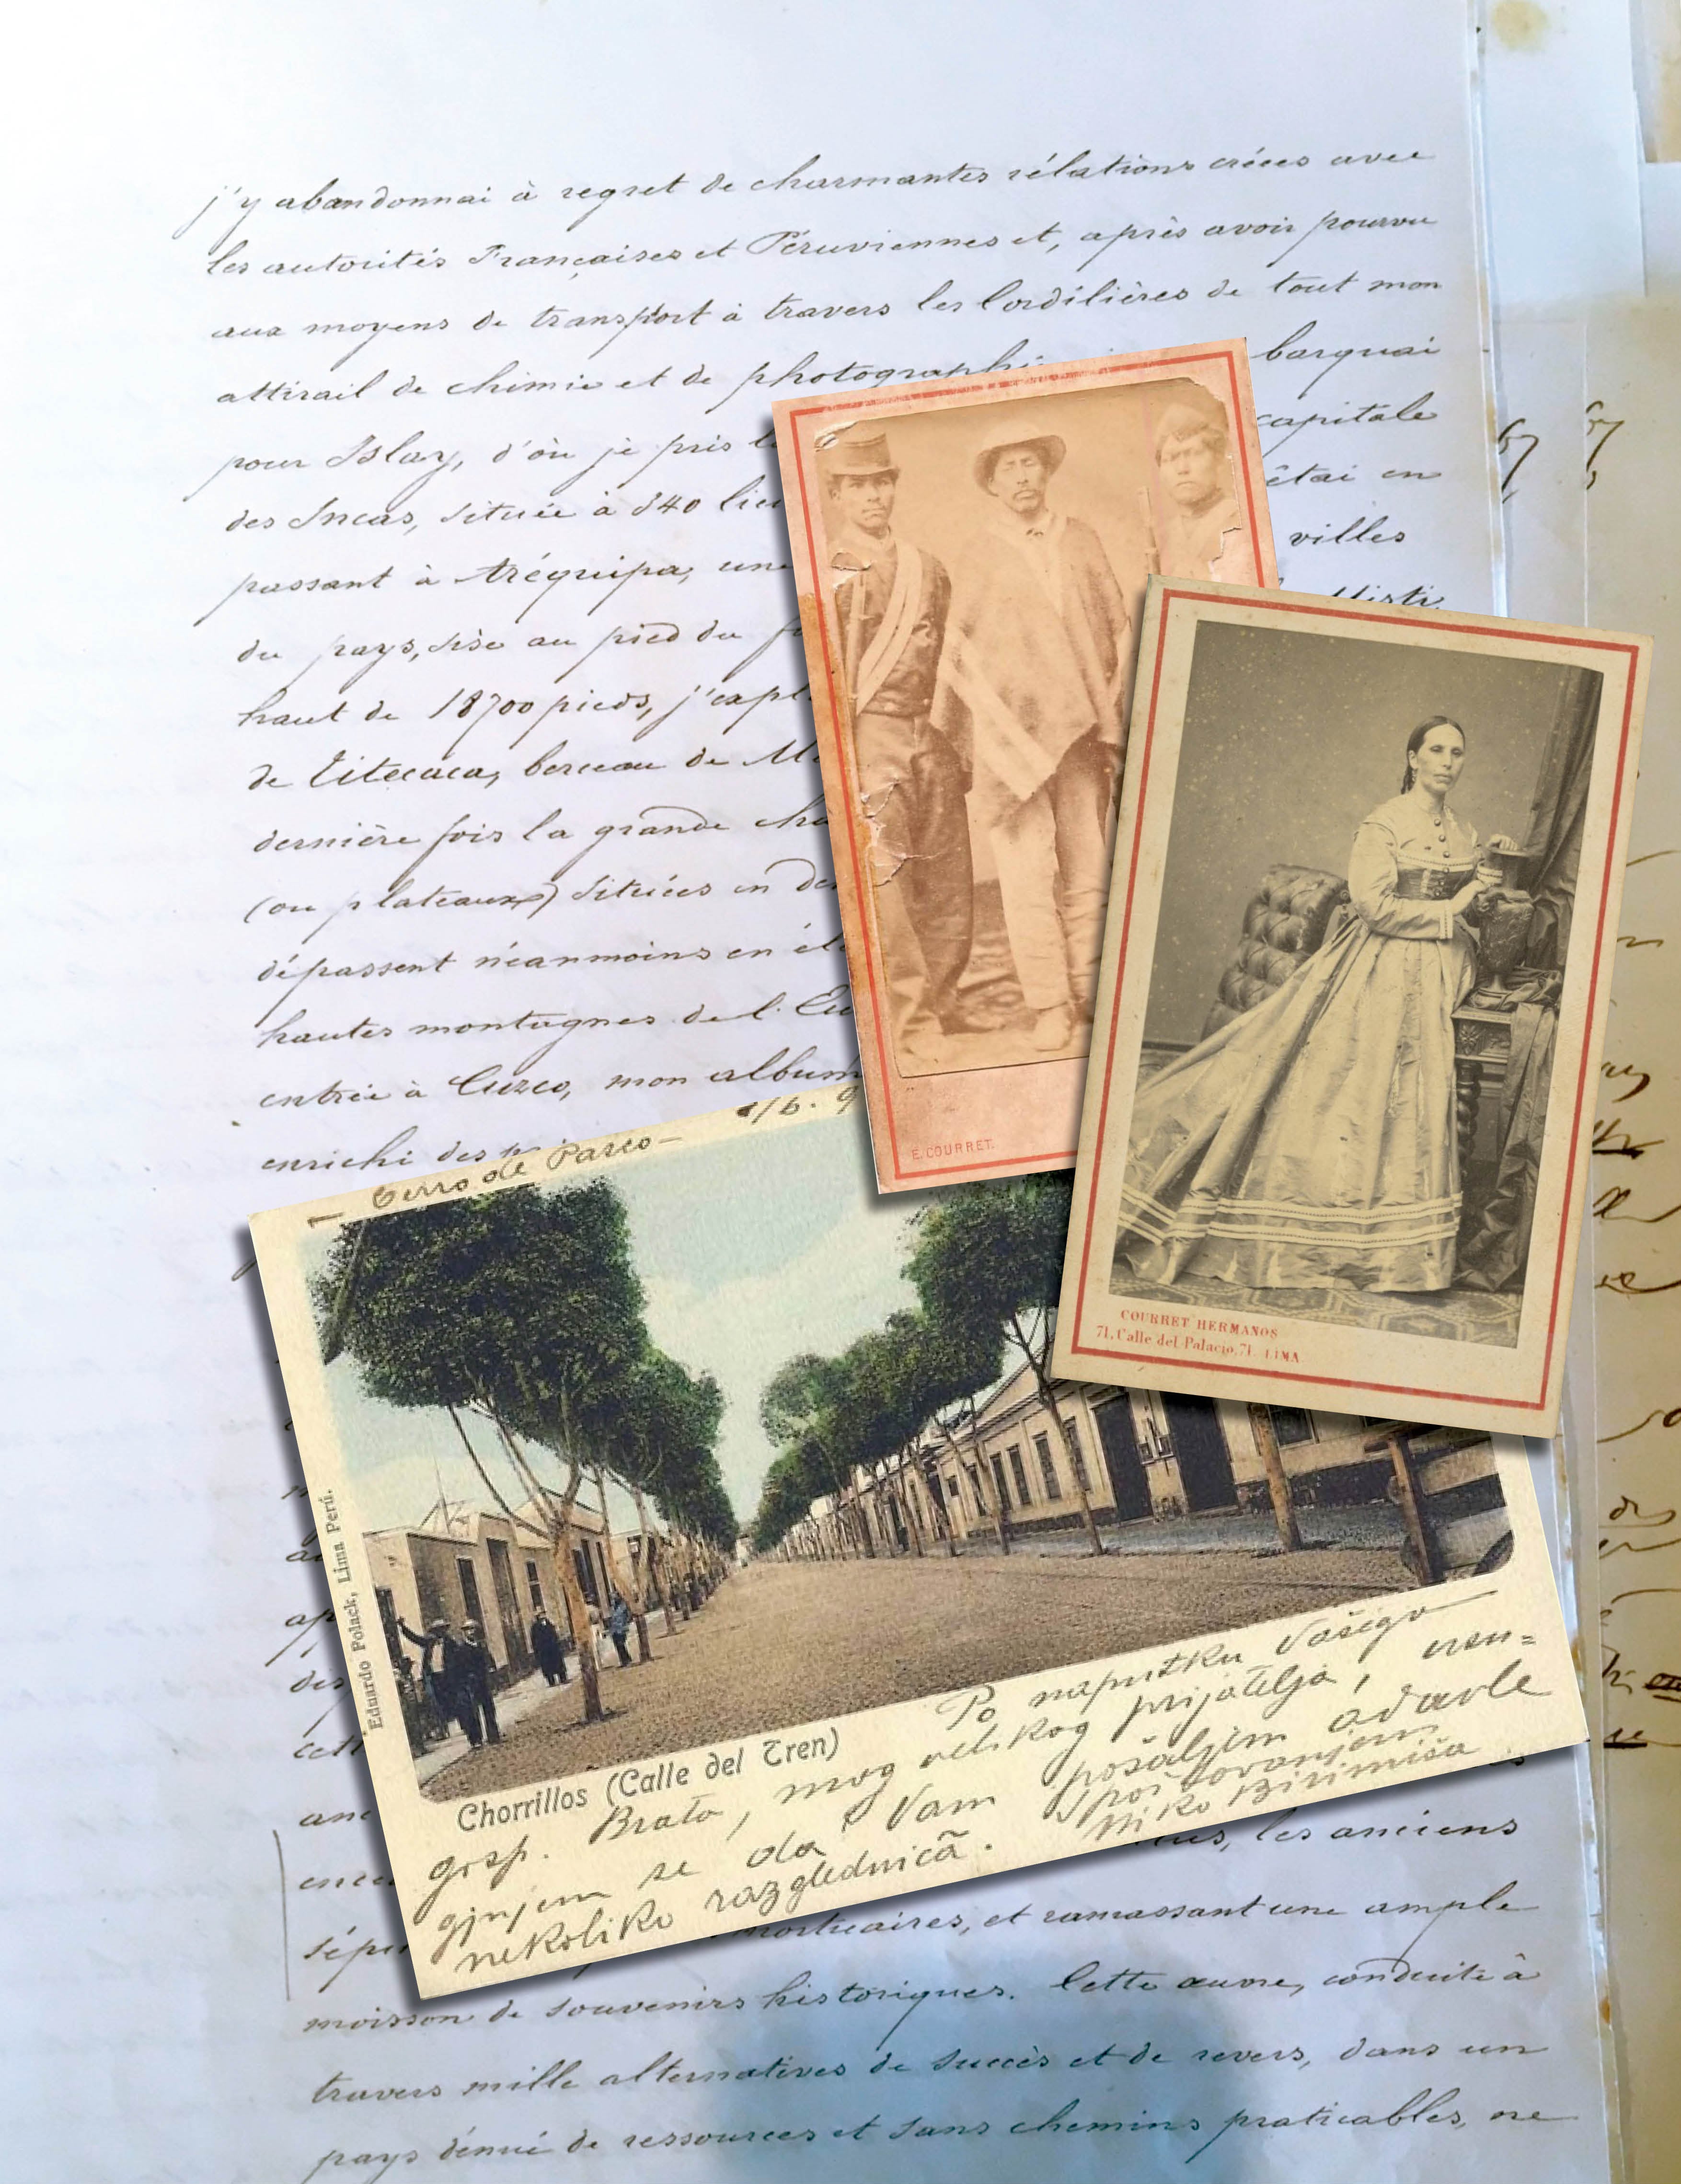 j'y abandonnai à regret de charmantes rélations créées avec
les autorités Françaises et Péruviennes et, après avoir pourvu
aux moyens de transport à travers les Cordilières de tout mon
attirail de chimie et de photographi barquai
pour Islay, d'où je pris capitale
des Incas, située à 340 lieu êtai en
passant à Aréquipa, une villes
du pays, sise au pied du Misti,
haut de 18700 pieds, j'expl
de Titecaca, berceau de M
dernière fois la grande cha
(ou plateaux) situées en de
dépassent néanmoins en él
hautes montagnes de l'Eu
entrée à Cuzco, mon album
enrichi des
ap
dis
cett
anc
enco
les anciens
sépu mortuaires, et ramassant une ample
moisson de souvenirs historiques. Cette œuvre, conduite à
travers mille alternatives de succès et de revers, dans un
pays dénué de ressources et sans chemins praticables, ne
E. COURRET.
COURRET HERMANOS
71, Calle del Palacio, 71. LIMA
Cerro de Pasco
Eduardo Polack, Lima Perú.
Chorrillos (Calle del Tren)
Po naputku Vašega
gosp. Brata, mog velikog prijatelja, usu=
gjujem se da Vam pošaljem odavle
nekoliko razglednicã. S poštovanjem
Niko Bizimiša